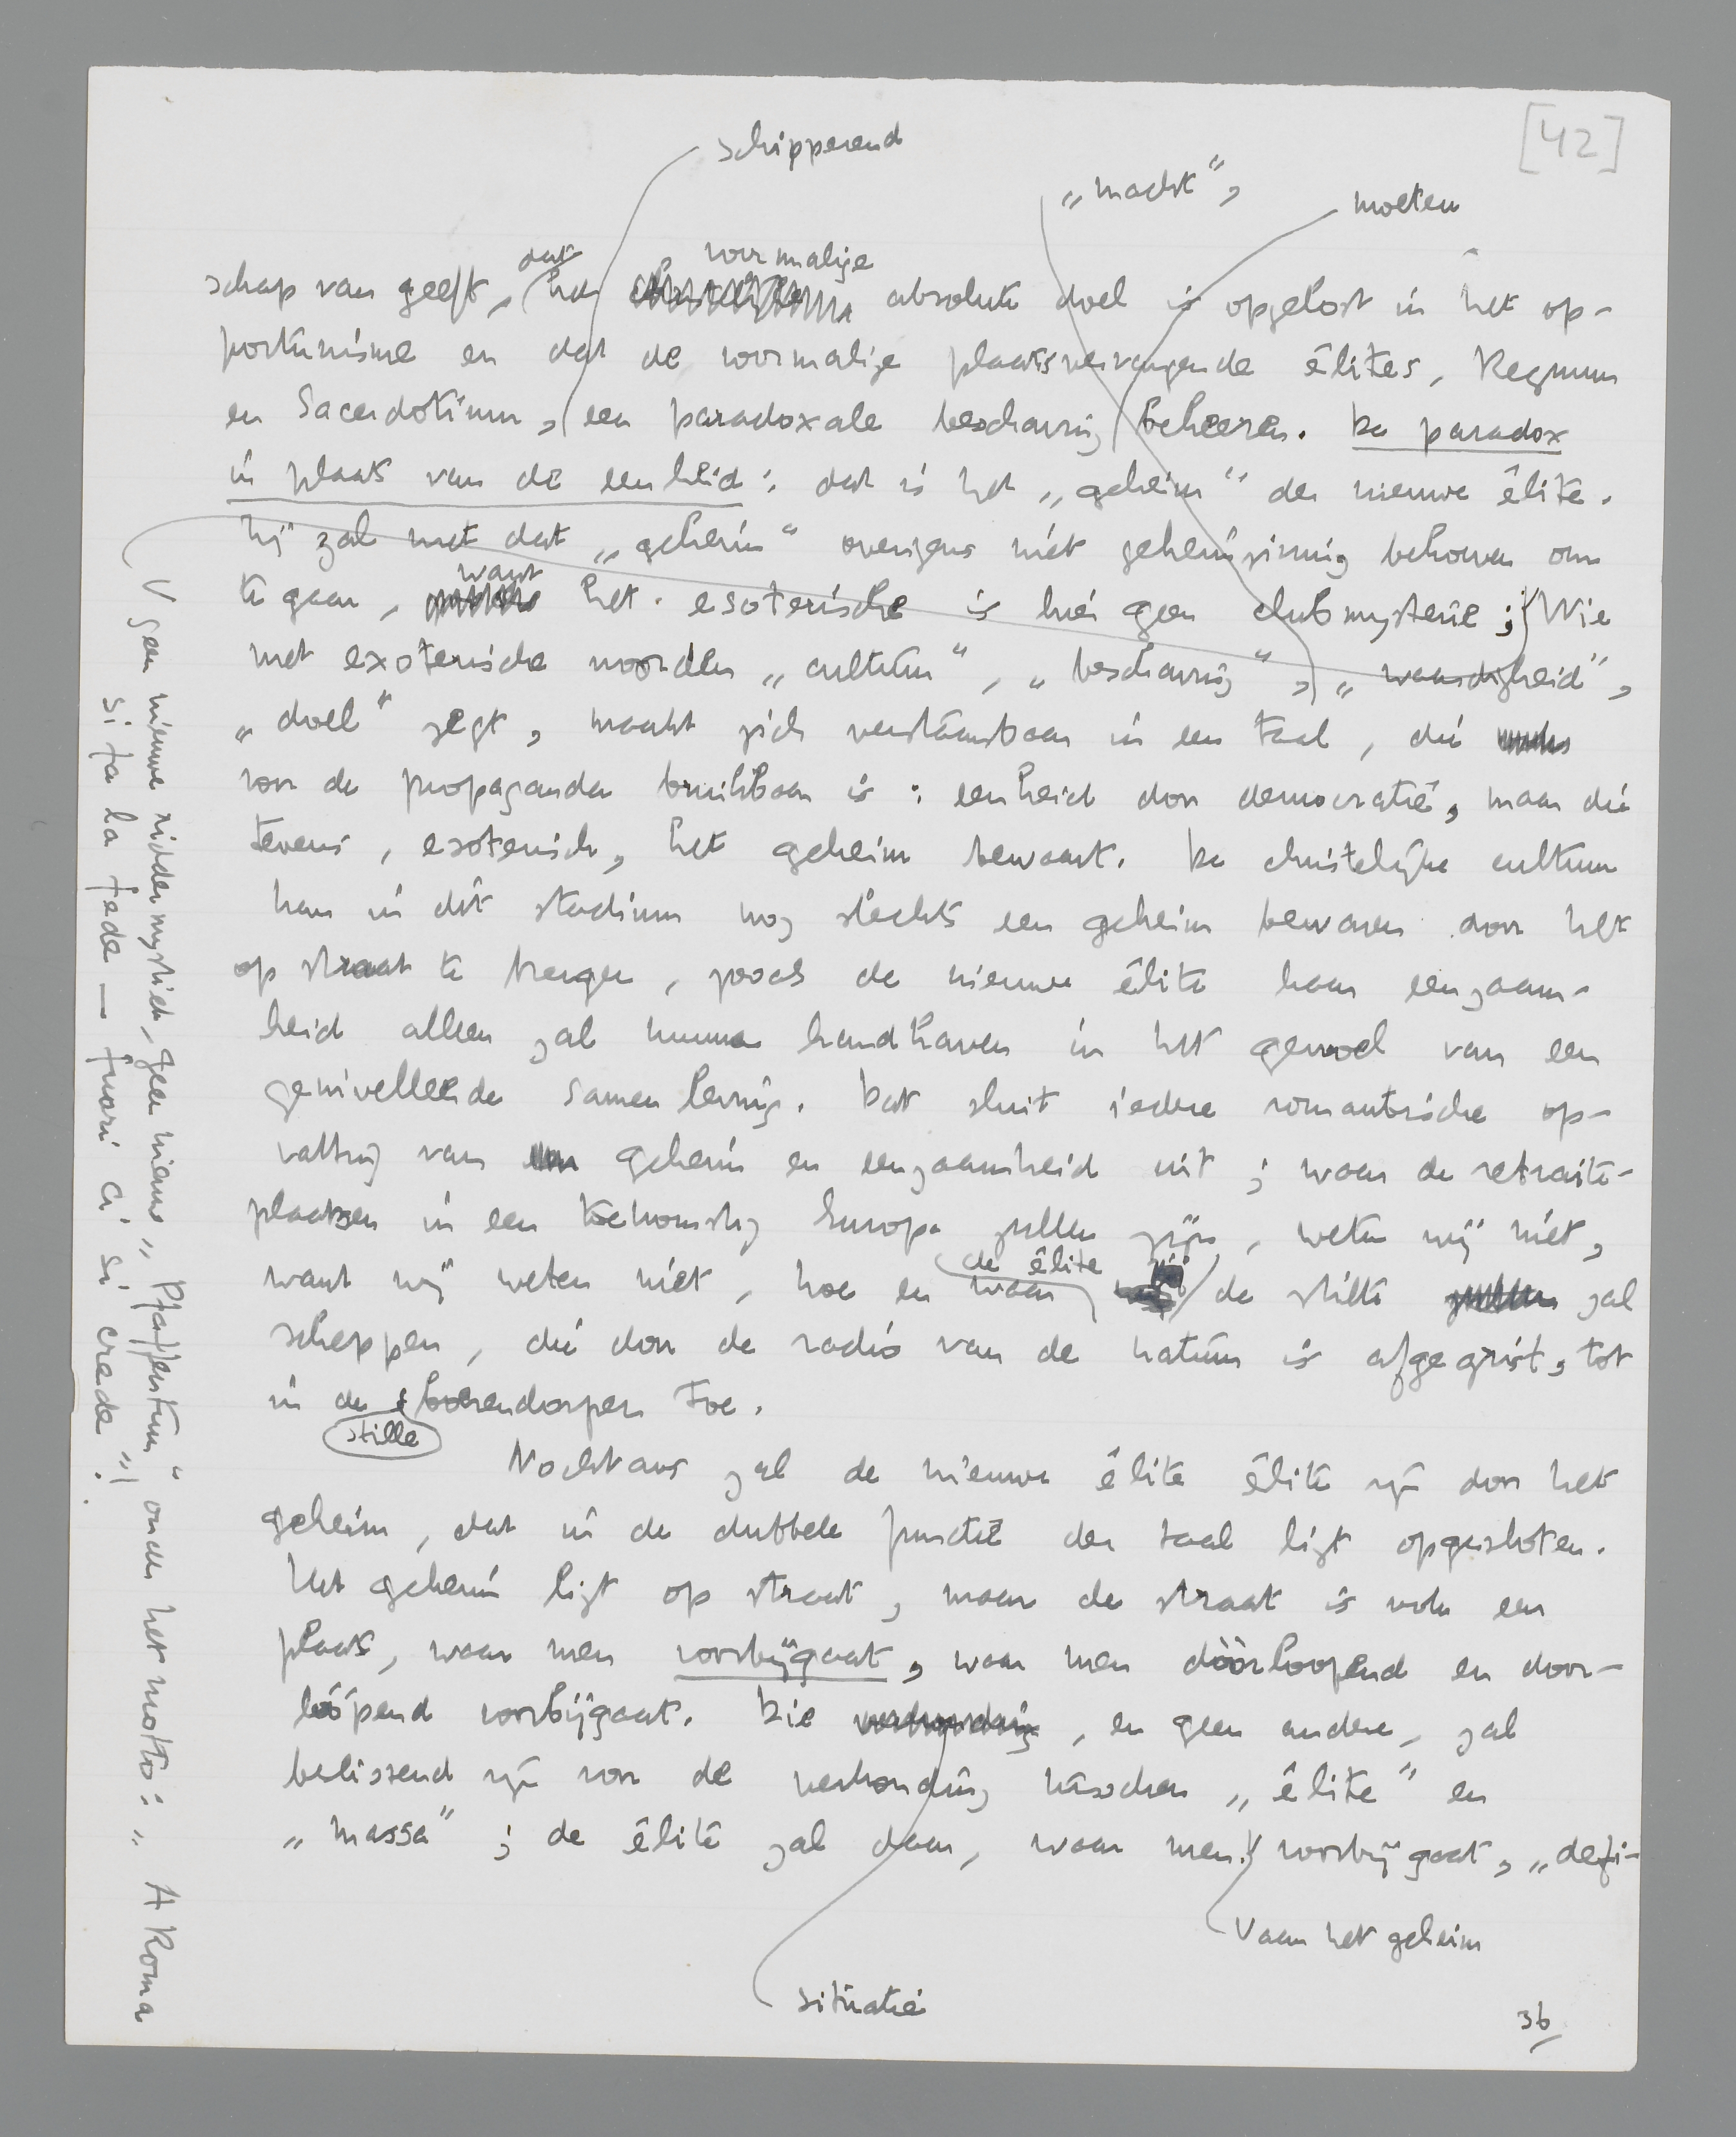 [42]
schipperend
„macht”,
moeten
dat
voormalige
schap van geeft, het absolute doel is opgelost in het op-
portunisme en dat de voormalige plaatsvervangende élites, Regnum
en Sacerdotium, een paradoxale beschaving beheeren. De paradox
in plaats van de eenheid: dat is het „geheim” der nieuwe élite.
Hij zal met dat „geheim” overigens niet geheimzinnig behoeven om
want
te gaan, het esoterische is hier geen clubmysterie; Wie
met exoterische woorden „cultuur”, „beschaving”, „waardigheid”,
„doel” zegt, maakt zich verstaanbaar in een taal, die
voor de propaganda bruikbaar is: eenheid door democratie, maar die
tevens, esoterisch, het geheim bewaart. De christelijke cultuur
kan in dit stadium nog slechts een geheim bewaren door het
op straat te brengen, zooals de nieuwe élite haar eenzaam-
heid alleen zal kunnen handhaven in het gewoel van een
genivelleerde samenleving. Dat sluit iedere romantische op-
vatting van geheim en eenzaamheid uit; waar de retraite-
plaatsen in een toekomstig Europa zullen zijn, weten wij niet,
de élite
want wij weten niet, hoe en waar de stilte zal
scheppen, die door de radio van de natuur is afgegrist, tot
in de boerendorpen toe.
stille
Nochtans zal de nieuwe élite élite zijn door het
geheim, dat in de dubbele functie der taal ligt opgesloten.
Het geheim ligt op straat, maar de straat is ook een
plaats, waar men voorbijgaat, waar men dóórloopend en door-
lóópend voorbijgaat. Die verhouding, en geen andere, zal
beslissend zijn voor de verhouding tusschen „élite” en
„massa”; de élite zal daar, waar men voorbijgaat, „defi-
aan het geheim
situatie
36
geen nieuwe riddermystiek, geen nieuw „Pfaffentum” onder het motto: „A Roma
si fa la fede — fuori ci si crede”!